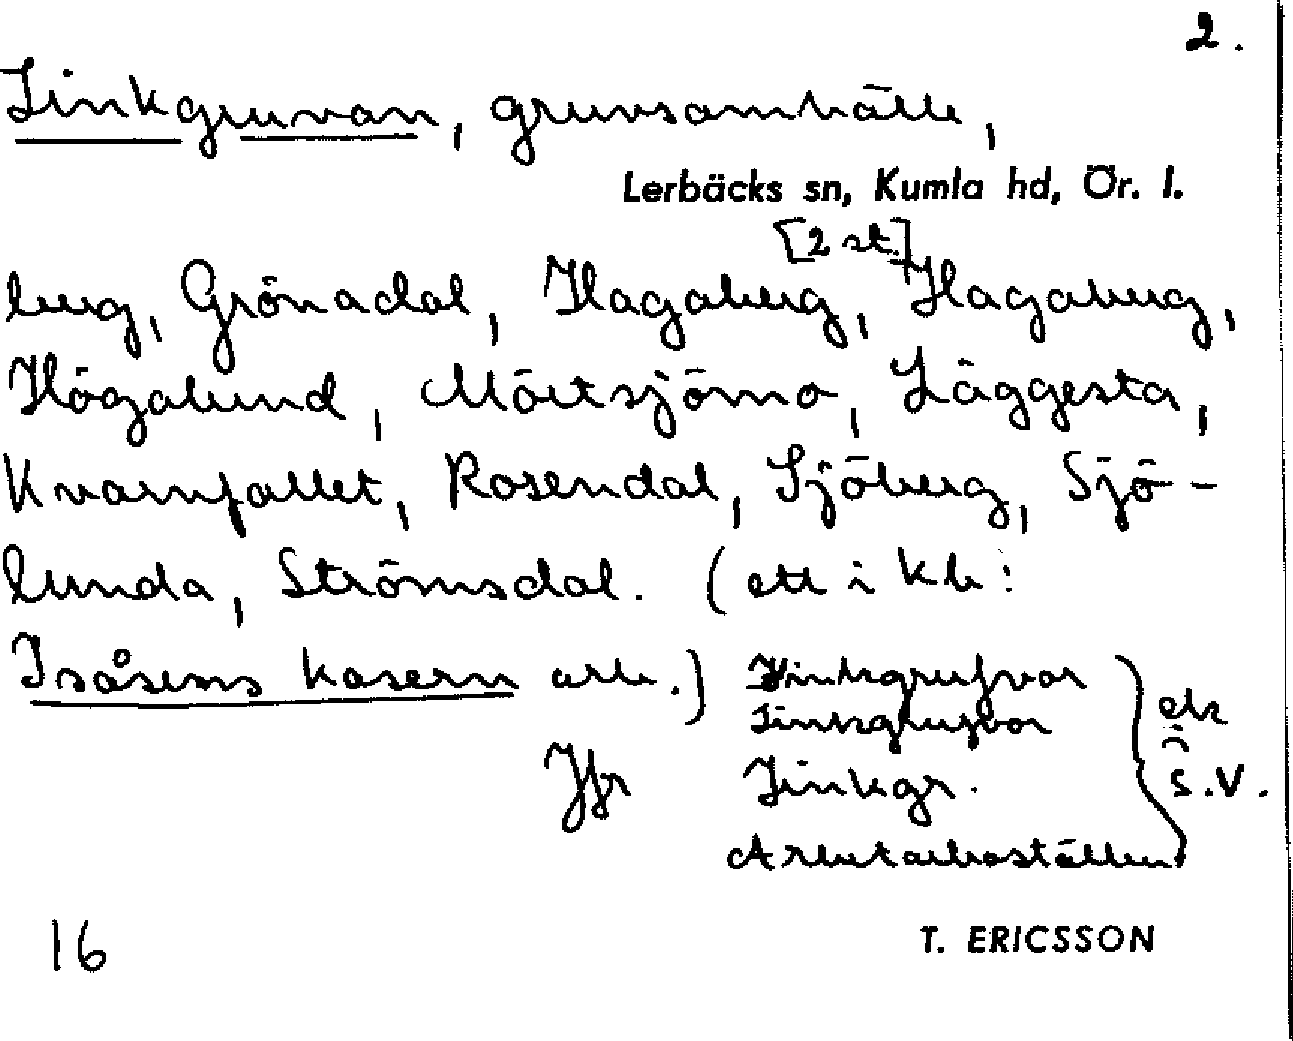 2.
Zinkgruvan, gruvsamhälle,
Lerbäcks sn, Kumla hd, Ör. l.
[2 st.]
berg, Grönadal, Hagaberg, Hagaberg,
Högalund, Mörtsjömo, Läggesta,
Kvarnfallet, Rosendal, Sjöberg, Sjö-
lunda, Strömsdal. (ett i kb:
Isåsens kasern arb.) Zinksgrufvor
Zinksgrufvor
Jfr Zinkgr.
Arbetarbostället
ek
s.v.
16
T. ERICSSON